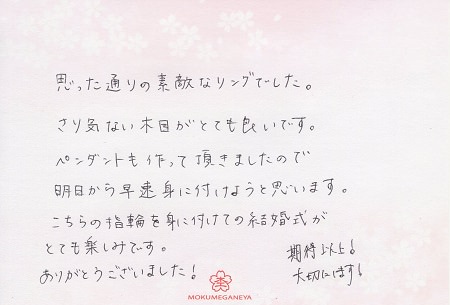 思った通りの素敵なリングでした。
さり気ない木目がとても良いです。
ペンダントも作って頂きましたので
明日から早速身に付けようと思います。
こちらの指輪を身に付けての結婚式が
とても楽しみです。
ありがとうございました!
期待以上!
大切にします!
MOKUMEGANEYA